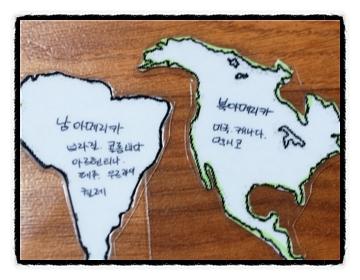 남아메리카
브라질. 콜롬비아
아르헨티나.
페루. 우루과이
칠레
북아메리카
미국. 캐나다.
멕시코